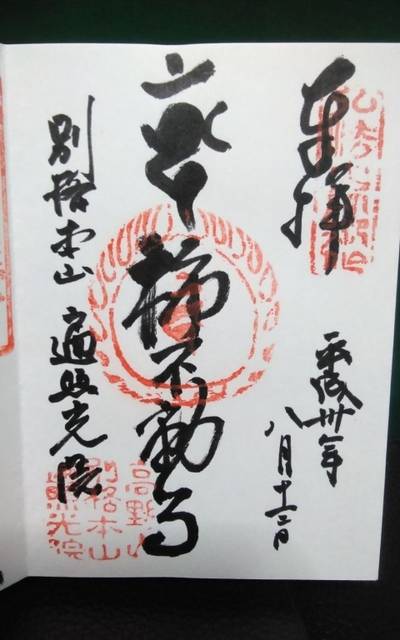 奉拝
平成卅年
八月十二日
不動
別格本山 遍照光院
高野山
別格本山
照光院